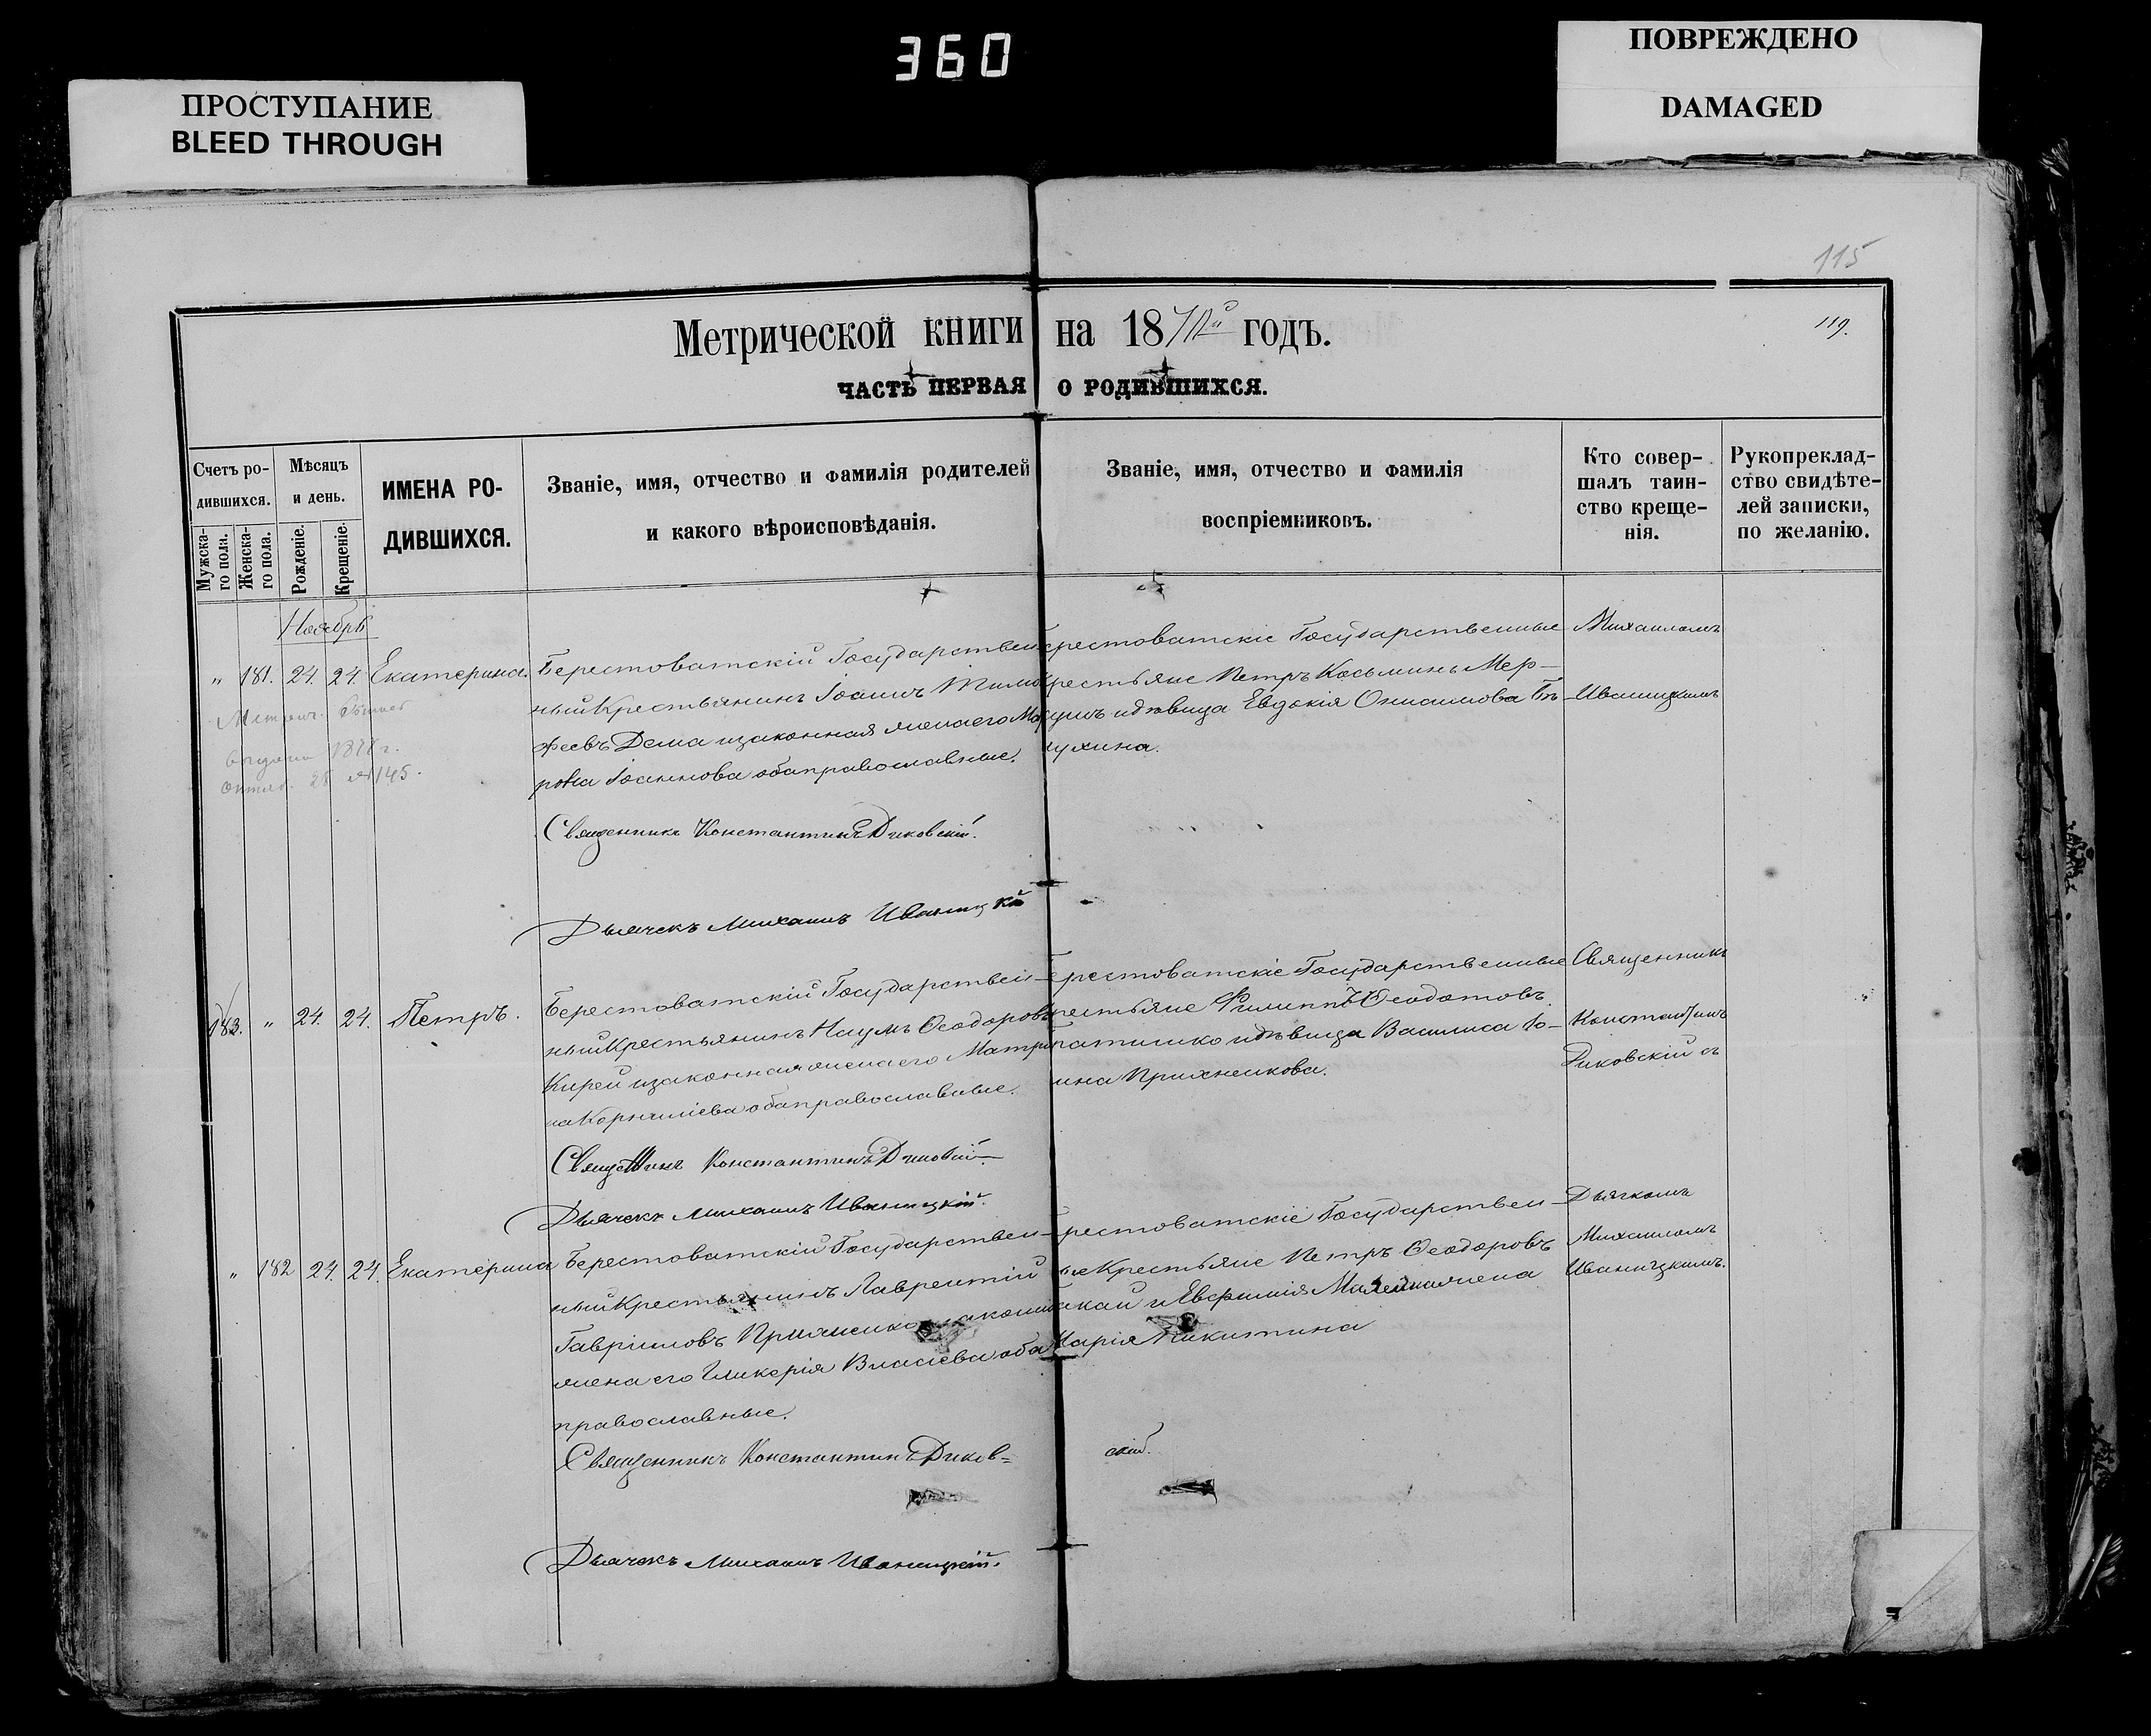 360
ПРОСТУПАНИЕ
BLEED THROUGH
ПОВРЕЖДЕНО
DAMAGED
115
119.
Метрической книги на 18 годъ.
ЧАСТЬ ПЕРВАЯ О РОДИВШИХСЯ.
Счетъ ро-
дившихся.
Мужска-
го пола.
Женска-
го пола.
Мѣсяцъ
и день.
Рожденіе.
Крещеніе.
ИМЕНА РО-
ДИВШИХСЯ.
Званіе, имя, отчество и фамилія родителей
и какого вѣроисповѣданія.
Званіе, имя, отчество и фамилія
воспріемниковъ.
Кто совер-
шалъ таин-
ство креще-
нія.
Рукопреклад-
ство свидѣте-
лей записки,
по желанію.
Ноябрь
" 181. 24. 24. Екатерина.
выдана 1878 г.
28 №145.
Берестоватскій Государствен
ный Крестьянинъ Іоаннъ Тимо
феевъ Дема изаконная жена его Мо
Іоаннова оба православные.
Священникъ Константинъ Диковскій.
Дьячекъ Михаилъ Иваницкій
ерестоватскіе Государственные
рестьяне Петръ Косьминъ Мер-
идѣвица Евдокія Онисимова
Михаиломъ
Иваницкимъ
183. " 24. 24. Петръ.
Берестоватскій Государствен-
ный Крестьянинъ Наумъ Ѳеодоровъ
Кирей изаконная жена его Матро
на Корниліева оба православные.
Священникъ Константинъ Диковскій.
Дьячекъ Михаилъ Иваницкій.
ерестоватскіе Государственные
рестьяне Филиппъ Ѳеодотовъ
идѣвица Василиса Іо-
ина
Священникъ
Константинъ
Диковскій съ
Дьячкомъ
Михаиломъ
Иваницкимъ.
" 182 24. 24. Екатерина
Берестоватскій Государствен-
ный Крестьянинъ Лаврентій
Гавріиловъ
жена его Гликерія Власіева оба
православные.
Священникъ Константинъ Диков=
скій.
Дьячекъ Михаилъ Иваницкій.
рестоватскіе Государствен-
ые Крестьяне Петръ Ѳеодоровъ
жена
Марія Никитина